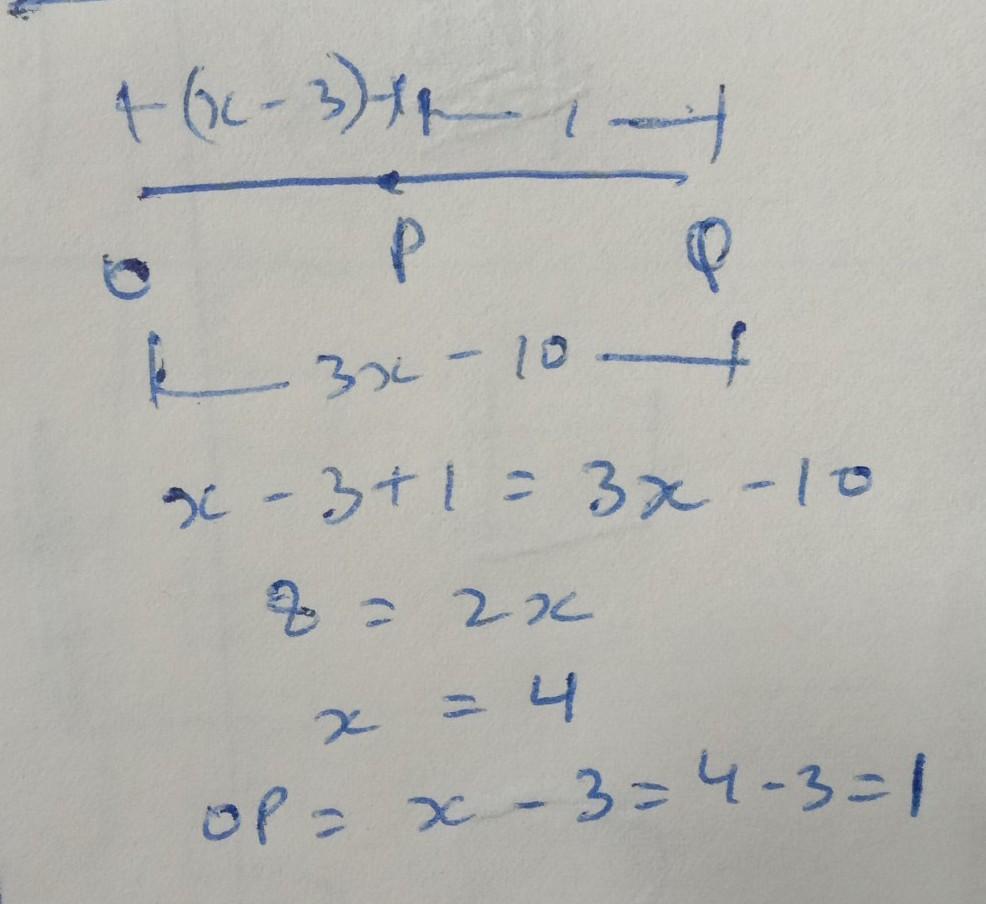 (x - 3) 1
O P Q
3x - 10
x - 3 + 1 = 3x - 10
8 = 2x
x = 4
OP = x - 3 = 4 - 3 = 1